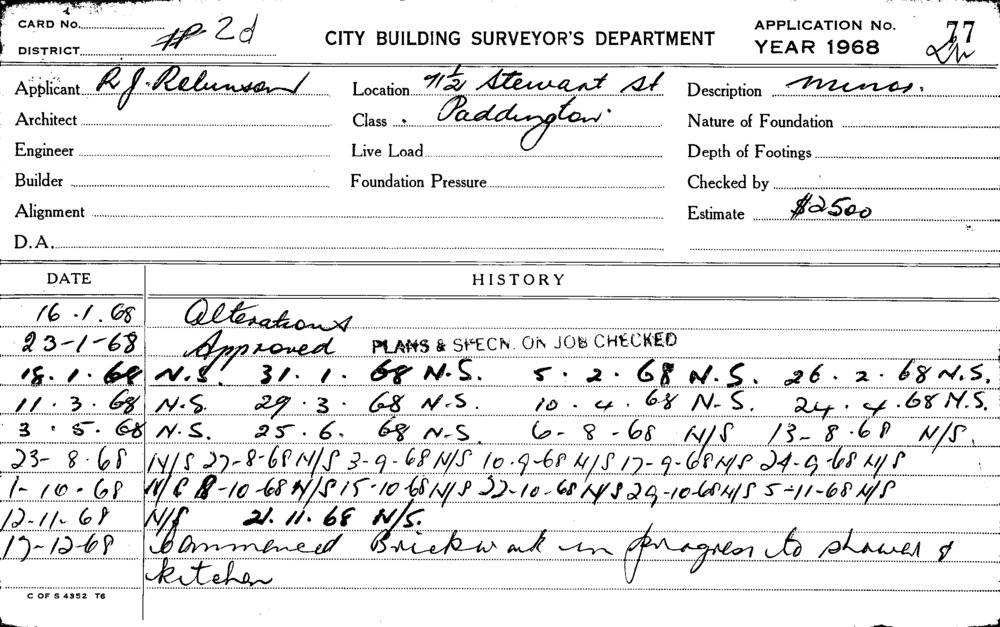 CARD No. HP 2d
DISTRICT
CITY BUILDING SURVEYOR'S DEPARTMENT
APPLICATION No. 77
YEAR 1968
Applicant R J. Robinson Location 71½ Stewart St Description minor.
Architect Class . Paddington Nature of Foundation
Engineer Live Load Depth of Footings
Builder Foundation Pressure Checked by
Alignment Estimate $2500
D.A.
DATE HISTORY
16.1.68 Alterations
23-1-68 Approved PLANS & SPECN. ON JOB CHECKED
18.1.68 N.S. 31.1.68 N.S. 5.2.68 N.S. 26.2.68 N.S.
11.3.68 N.S. 29.3.68 N.S. 10.4.68 N-S. 24.4.68 N.S.
3.5.68 N.S. 25.6.68 N-S. 6-8-68 N/S 13-8-68 N/S.
23-8-68 N/S 27-8-68 N/S 3-9-68 N/S 10-9-68 N/S 17-9-68 N/S 24-9-68 N/S
1-10-68 N/S 8-10-68 N/S 15-10-68 N/S 22-10-68 N/S 29-10-68 N/S 5-11-68 N/S
12-11-68 N/S 21.11.68 N/S.
17-12-68 Commenced Brickwork in progress to shower &
kitchen
C OF S 4352 T6